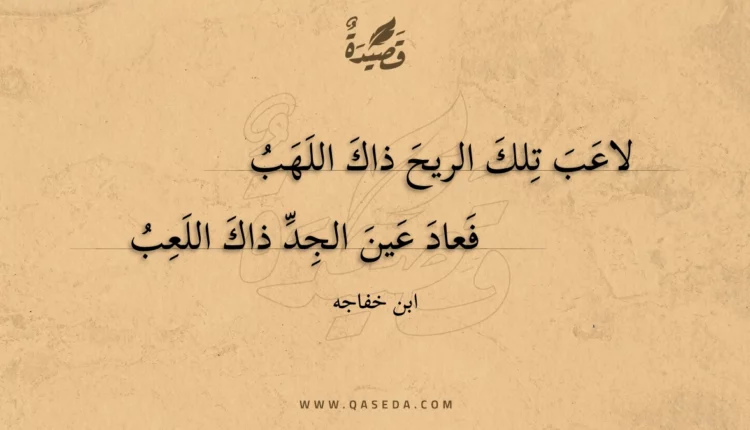 قَصِيدَةٌ
لاعَبَ تِلكَ الريحَ ذاكَ اللَهَبُ
فَعادَ عَينَ الجِدِّ ذاكَ اللَعِبُ
ابن خفاجه
WWW.QASEDA.COM